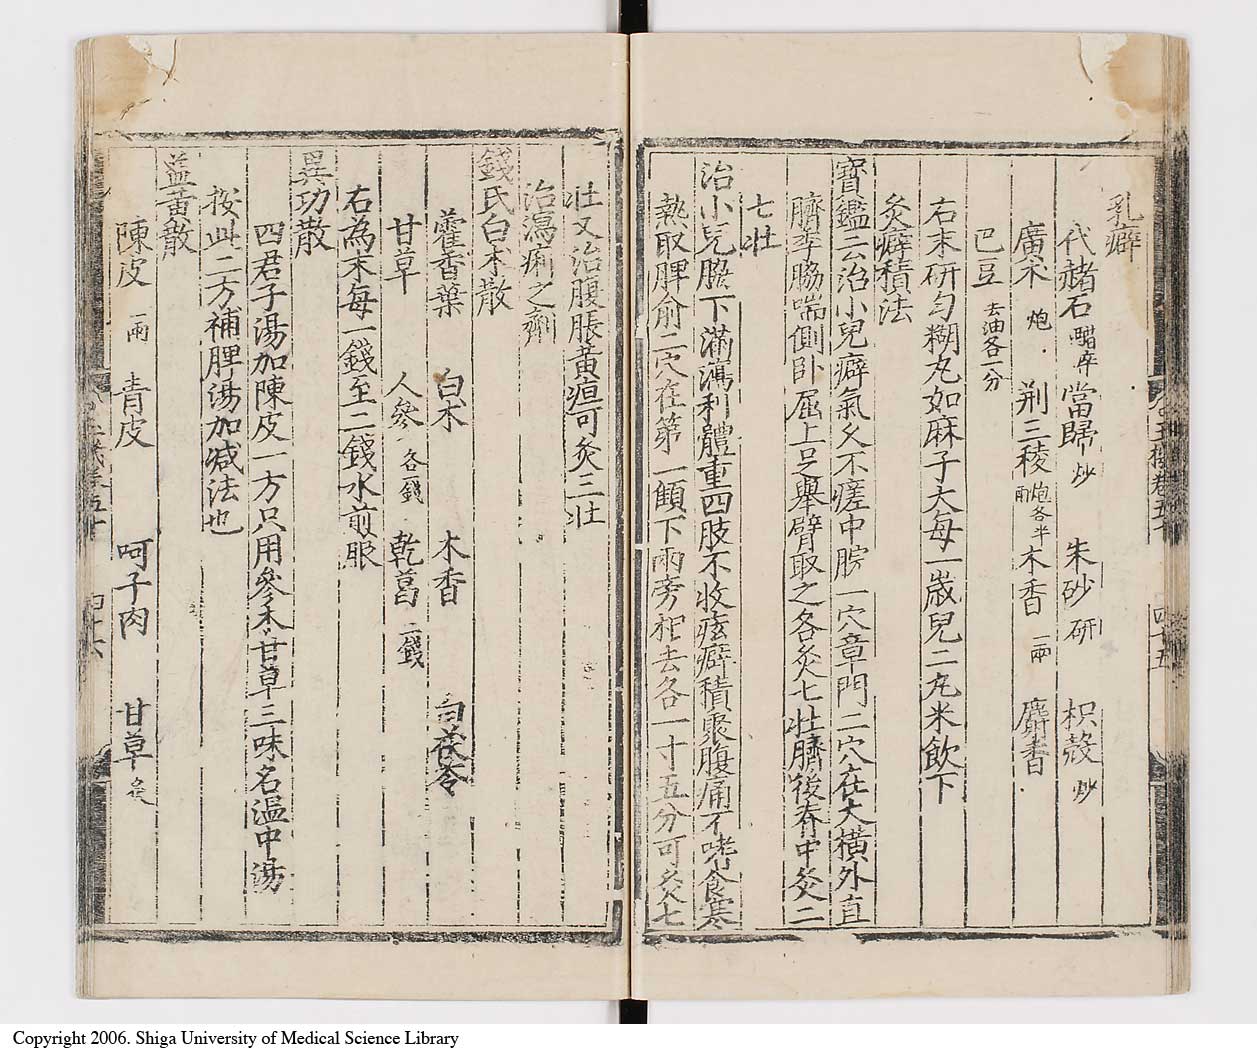 乳癖
代赭石醋淬 當歸炒 朱砂研 枳殼炒
廣朮炮 荆三稜炮各半兩 木香一兩 麝香
巴豆去油各一分
右末研勻糊丸如麻子大每一歲兒二丸米飲下
灸癖積法
寶鑑云治小兒癖氣久不瘥中脘一穴章門二穴在大橫外直
臍季脇喘側卧屈上足舉臂取之各灸七壯臍後脊中灸二
七壯
治小兒脇下滿瀉利體重四肢不收痃癖積聚腹痛不嗜食寒
熱取脾俞二穴在第一顀下兩旁相去各一寸五分可灸七
壯又治腹脹黃疸可灸三壯
治瀉痢之劑
錢氏白朮散
藿香葉 白朮 木香 白茯苓
甘草 人參各一錢 乾葛二錢
右為末每一錢至二錢水煎服
異功散
四君子湯加陳皮一方只用參朮甘草三味名溫中湯
按此二方補脾湯加減法也
益黃散
陳皮一兩 青皮 呵子肉 甘草各
四十五
四十六
Copyright 2006. Shiga University of Medical Science Library